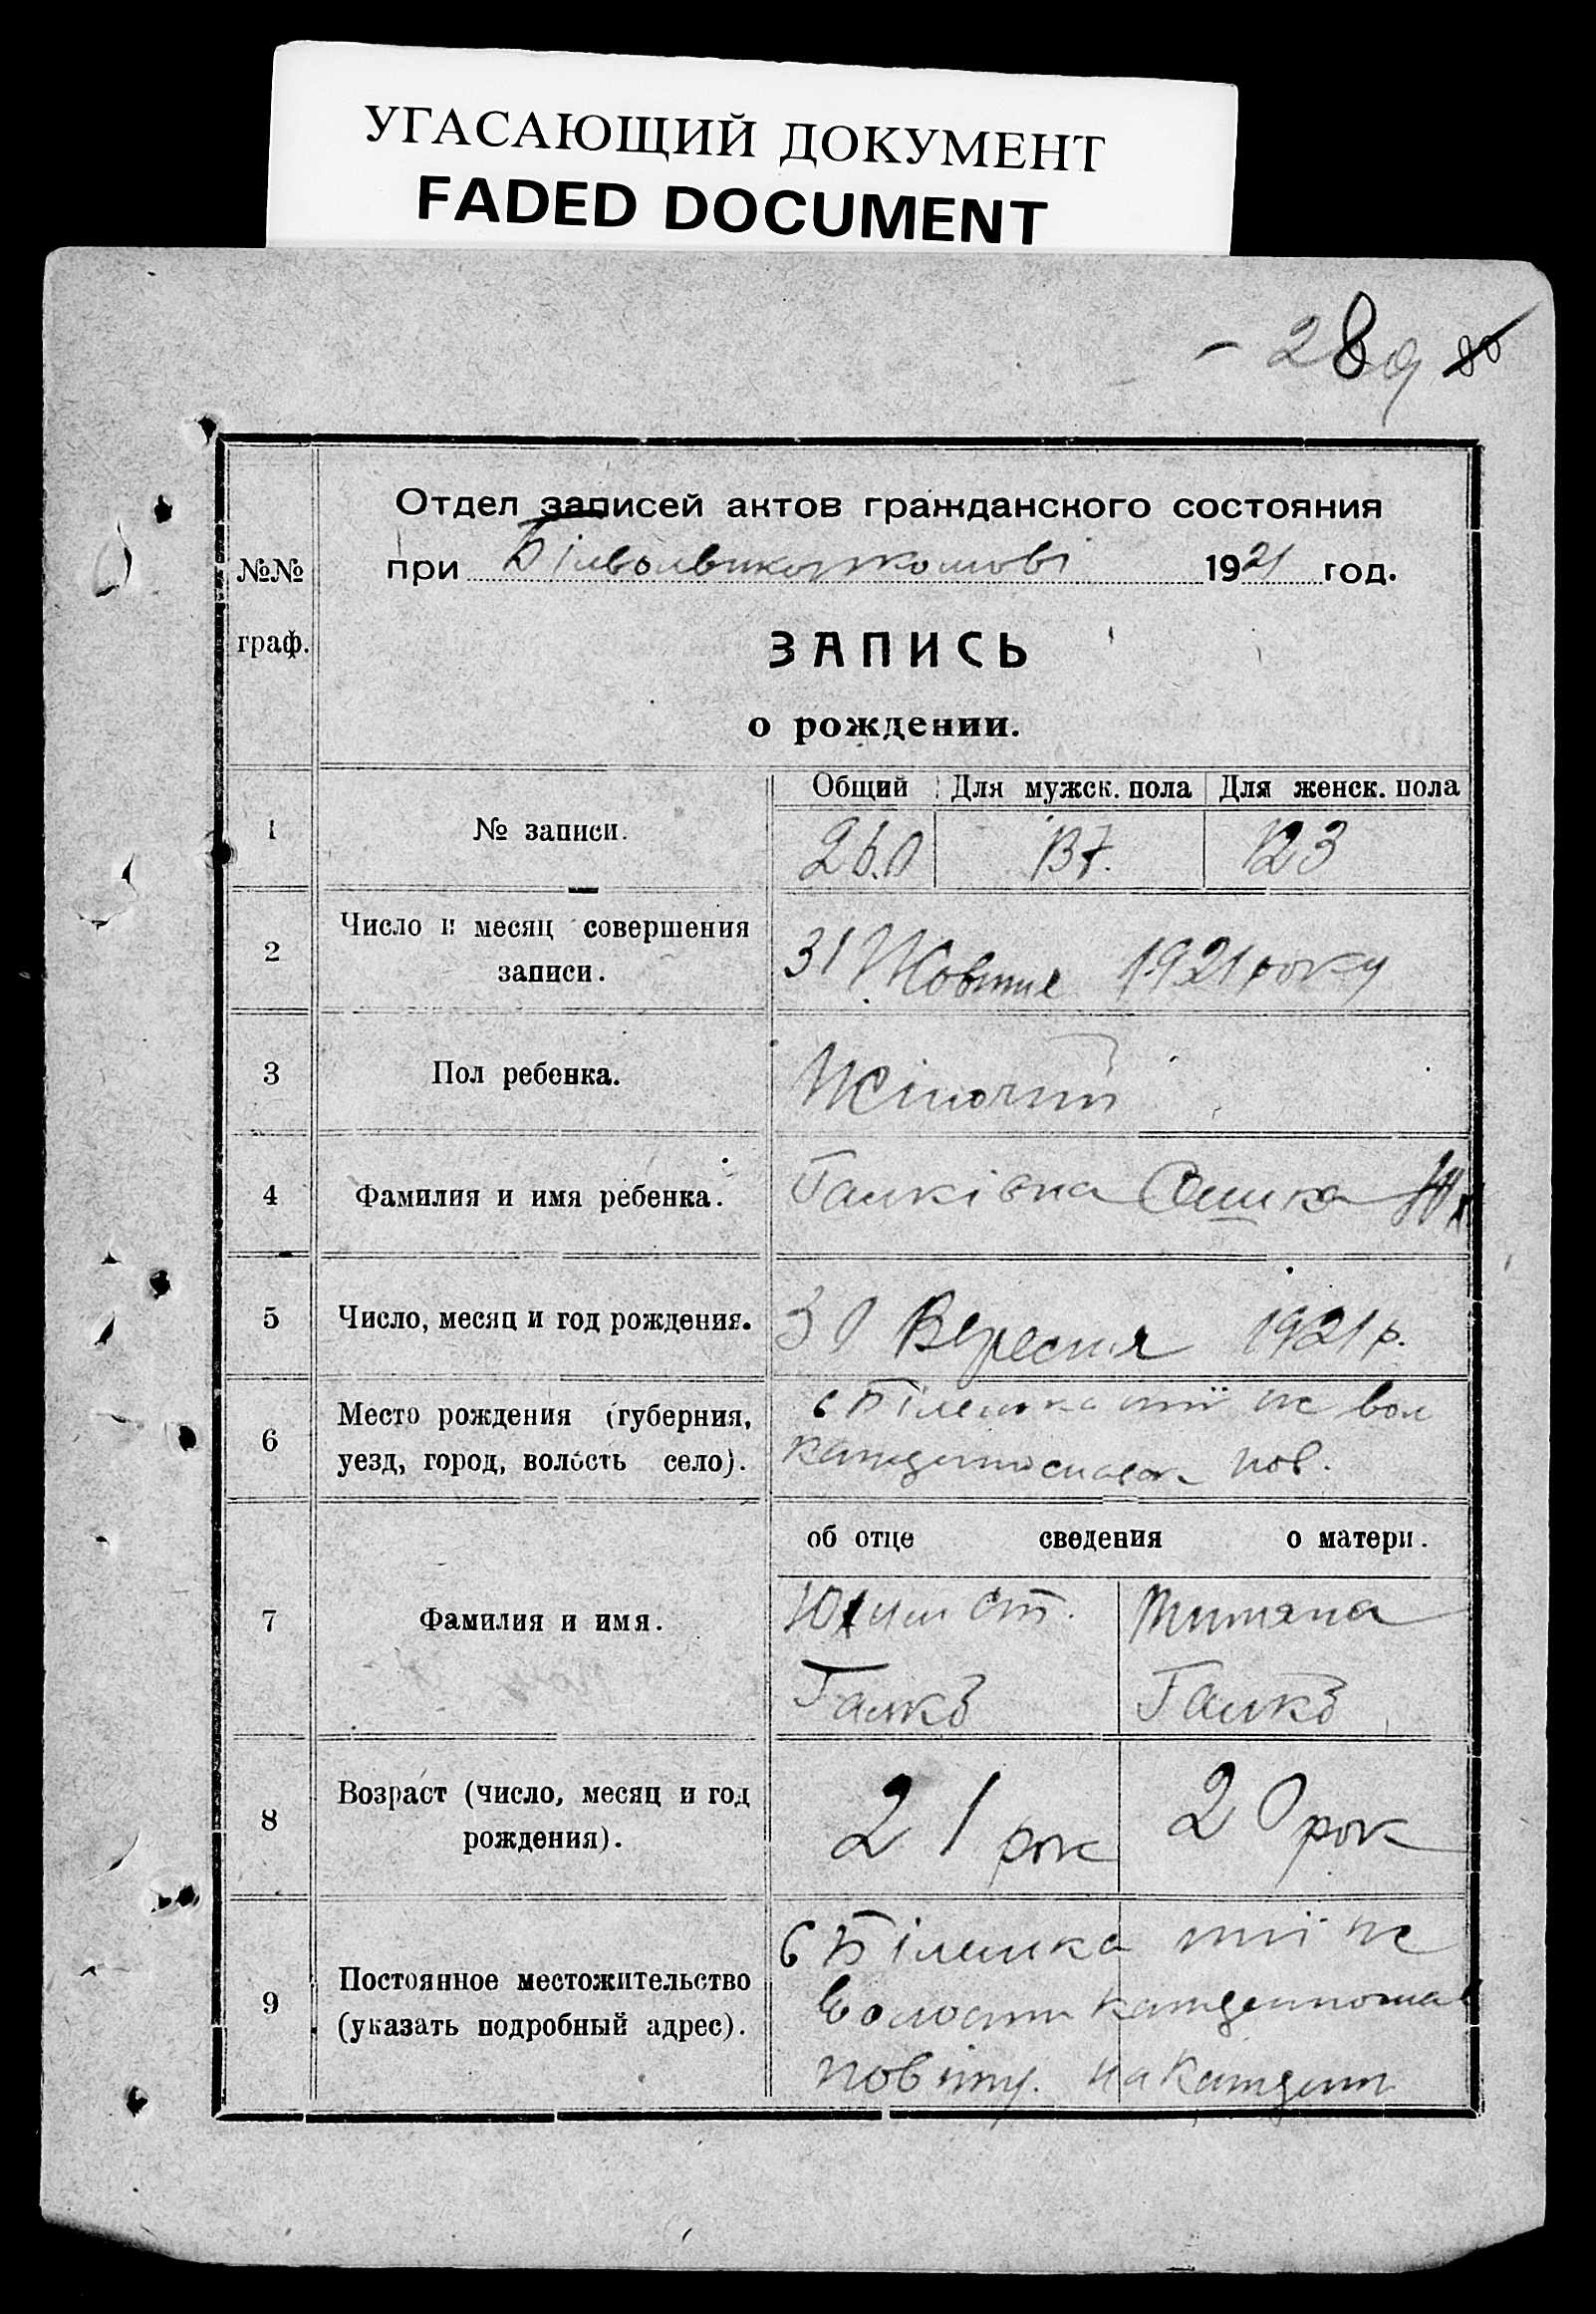 УГАСАЮЩИЙ ДОКУМЕНТ
FADED DOCUMENT
- 289 80
Отдел записей актов гражданского состояния
при Білволвиконкомові 1921 год.
№№
граф.
ЗАПИСЬ
о рождении.
Общий Для мужск. пола Для женск. пола
1 № записи. 260 137. 123
2 Число и месяц совершения
записи.
31 Жовтня 1921 року
3 Пол ребенка. Жіночий
4 Фамилия и имя ребенка. Галківна
5 Число, месяц и год рождения. 30 Вересня 1921 р.
6 Место рождения (губерния,
уезд, город, волость село).
с Білещка тії же вол
пов.
об отце сведения о матери.
7 Фамилия и имя.
Юхим Ст. Титяна
Галкъ Галкъ
8 Возраст (число, месяц и год
рождения).
21 рок 20 рок
9 Постоянное местожительство
(указать подробный адрес).
с тії же
Волости
повіту. на